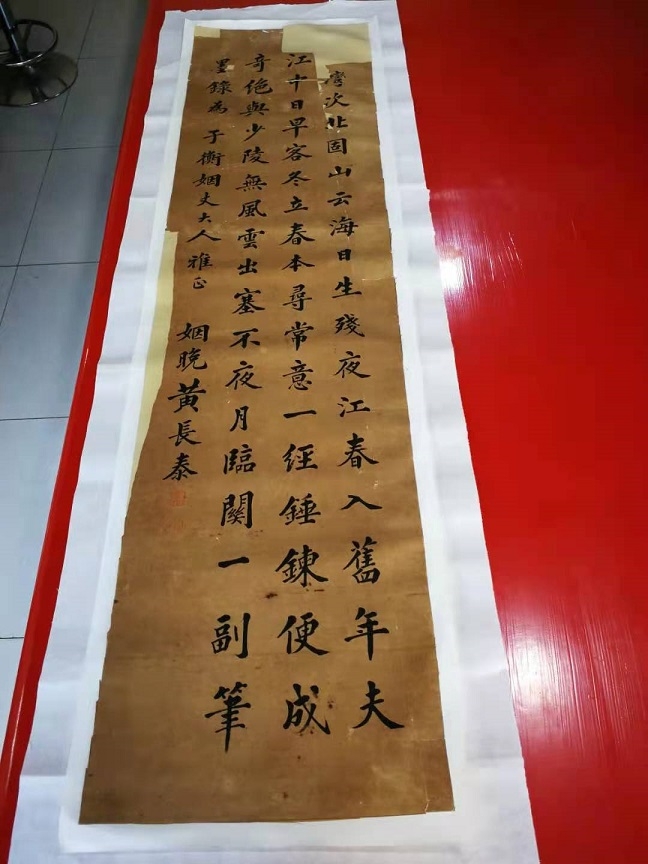 灣次北固山云海日生殘夜江春入舊年夫
江十日早客冬立春本尋常意一經錘鍊便成
奇絶與少陵無風雲出塞不夜月臨關一副筆
墨錄為 子衡姻丈大人雅正 姻晚黃長泰